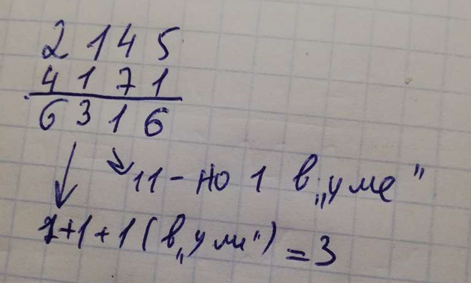 2 1 4 5
4 1 7 1
6 3 1 6
11 - но 1 в „уме"
1+1+1 (в „уме") = 3